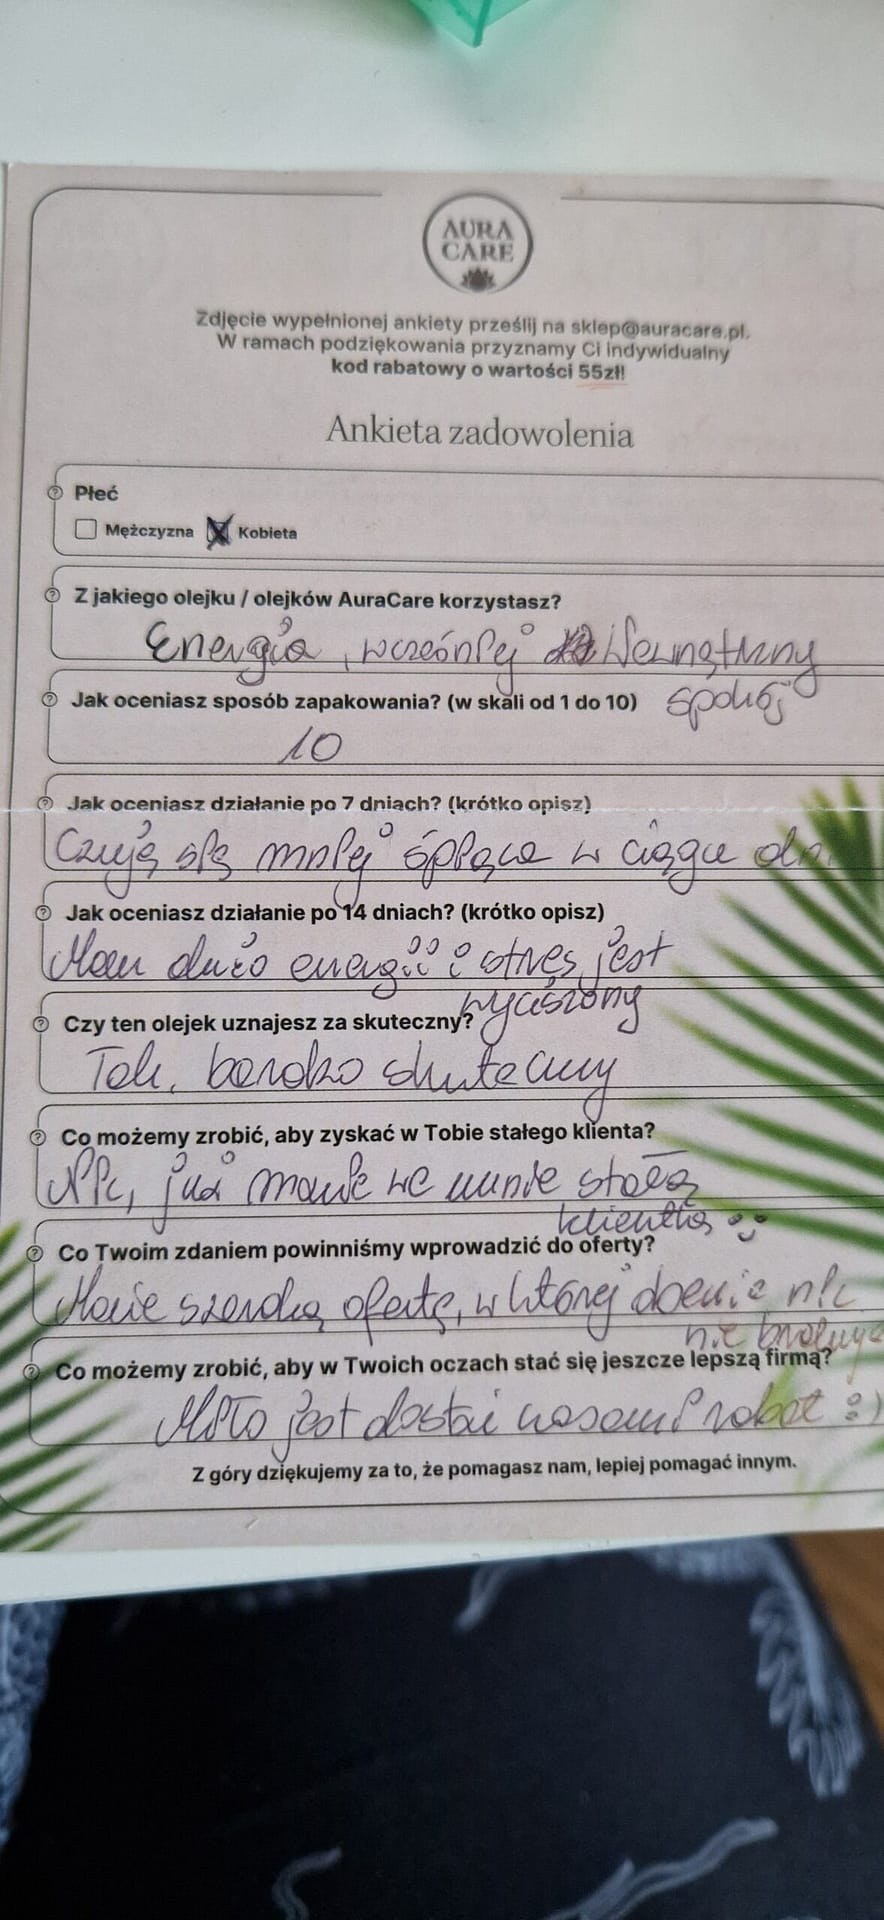 AURA
CARE
Zdjęcie wypełnionej ankiety prześlij na sklep@auracare.pl.
W ramach podziękowania przyznamy Ci indywidualny
kod rabatowy o wartości 55zł!
Ankieta zadowolenia
Płeć
Mężczyzna Kobieta
Z jakiego olejku / olejków AuraCare korzystasz?
Energia, wcześniej Wewnętrzny
spokój
Jak oceniasz sposób zapakowania? (w skali od 1 do 10)
10
Jak oceniasz działanie po 7 dniach? (krótko opisz)
Czuję się mniej śpiąca w ciągu dn
Jak oceniasz działanie po 14 dniach? (krótko opisz)
Mam dużo energii i stres jest
wyciszony
Czy ten olejek uznajesz za skuteczny?
Tak, bardzo skuteczny
Co możemy zrobić, aby zyskać w Tobie stałego klienta?
Nic, już macie we mnie stałą
klientkę :)
Co Twoim zdaniem powinniśmy wprowadzić do oferty?
Macie szeroką ofertę, w której obecnie nic
nie brakuje
Co możemy zrobić, aby w Twoich oczach stać się jeszcze lepszą firmą?
Miło jest dostać czasami rabat :)
Z góry dziękujemy za to, że pomagasz nam, lepiej pomagać innym.